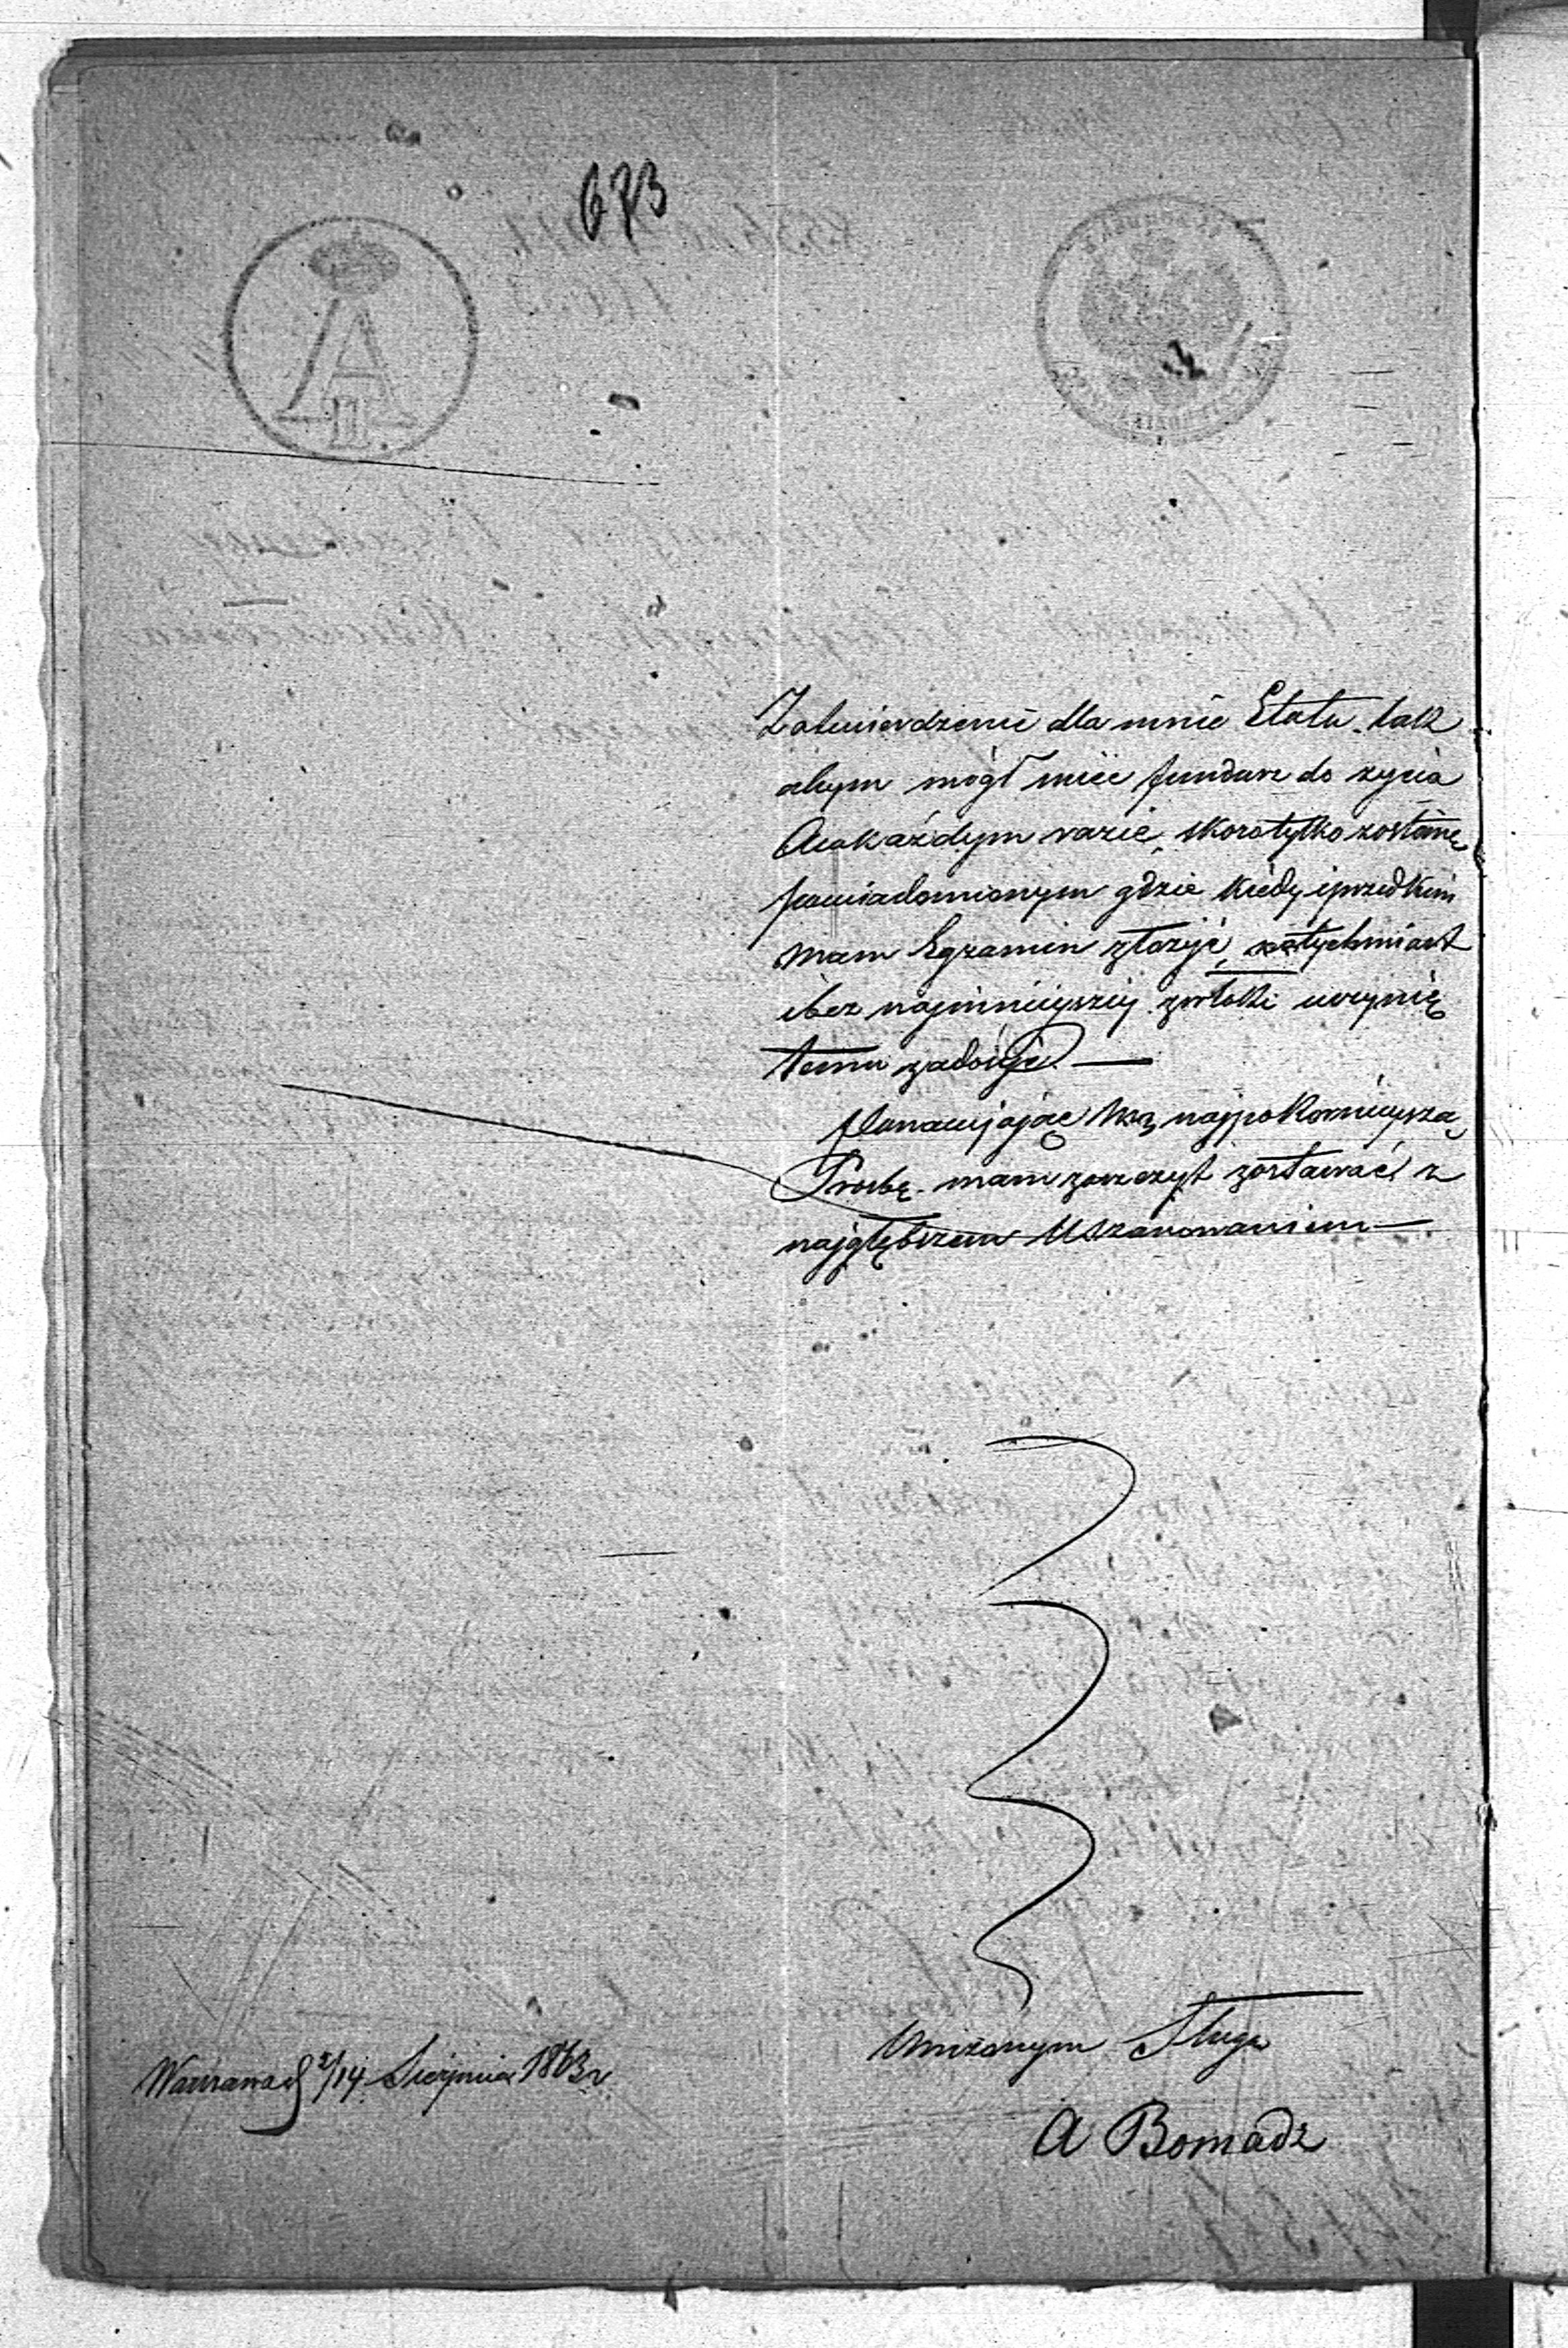 673
A
II
Zatwierdzenie dla mnie Etatu. tak
abym mógł mieć fundusz do życia
A w każdym razie, skoro tylko zostanę
powiadomionym gdzie kiedy i przed kim
mam Egzamin złożyć, natychmiast
i bez najmniejszej zwłoki uczynię
temu zadosyć. —
Ponawiając najpokorniejszą
Prośbę. mam zaszczyt zostawać z
najgłębszem Uszanowaniem —
Uniżonym Sługą
Warszawa d 2/14 Sierpnia 1863 r
A Bomadz